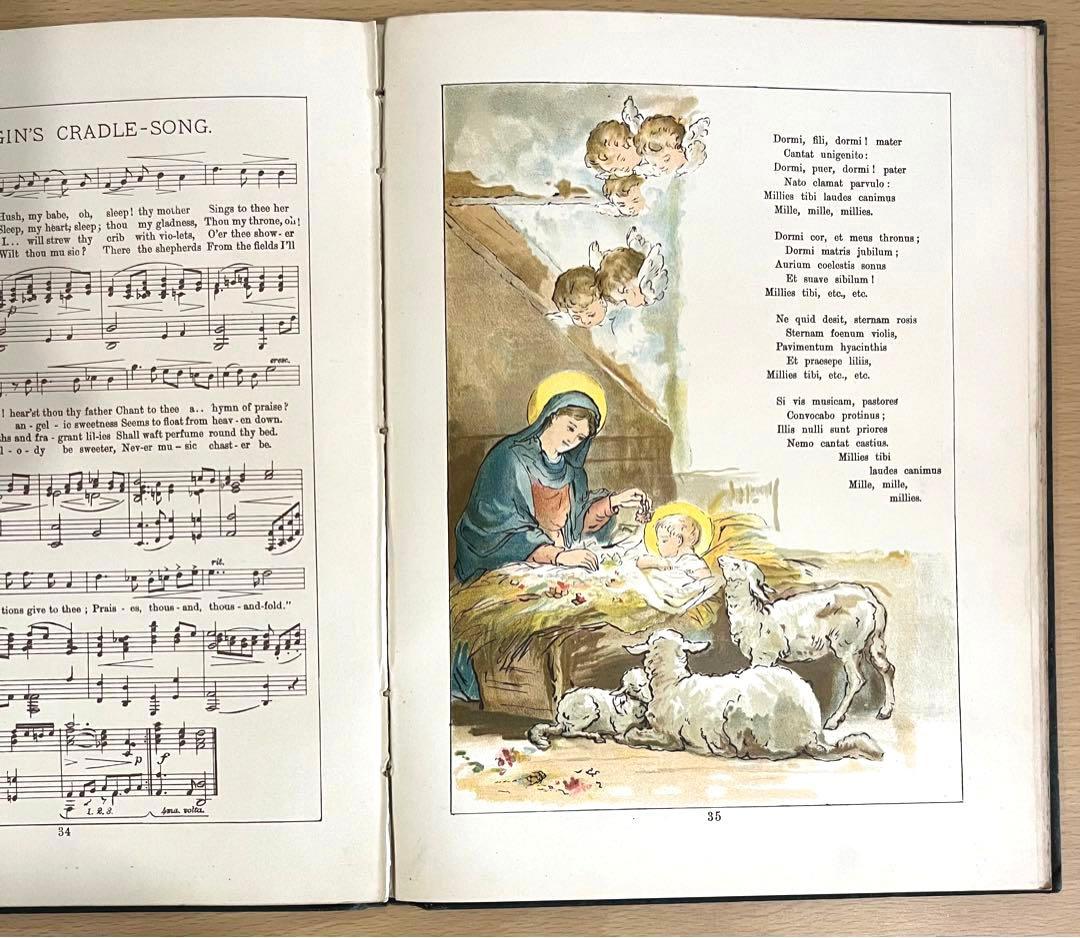 GIN'S CRADLE-SONG.
Hush, my babe, oh, sleep! thy mother Sings to thee her
Sleep, my heart; sleep; thou my gladness, Thou my throne, oh!
I.. will strew thy crib with vio-lets, O'er thee show-er
Wilt thou mu sic? There the shepherds From the fields I'll
p
cresc.
! hear'st thou thy father Chant to thee a.. hymn of praise?
an-gel-ic sweetness Seems to float from heav-en down.
ths and fra-grant lil-ies Shall waft perfume round thy bed.
l-o-dy be sweeter, Nev-er mu-sic chast-er be.
rit.
tions give to thee; Prais-es, thous-and, thous-and-fold."
p f
1. 2. 3. 4ma. volta.
34
Dormi, fili, dormi! mater
Cantat unigenito:
Dormi, puer, dormi! pater
Nato clamat parvulo:
Millies tibi laudes canimus
Mille, mille, millies.
Dormi cor, et meus thronus;
Dormi matris jubilum;
Aurium coelestis sonus
Et suave sibilum!
Millies tibi, etc., etc.
Ne quid desit, sternam rosis
Sternam foenum violis,
Pavimentum hyacinthis
Et praesepe liliis,
Millies tibi, etc., etc.
Si vis musicam, pastores
Convocabo protinus;
Illis nulli sunt priores
Nemo cantat castius.
Millies tibi
laudes canimus
Mille, mille,
millies.
35